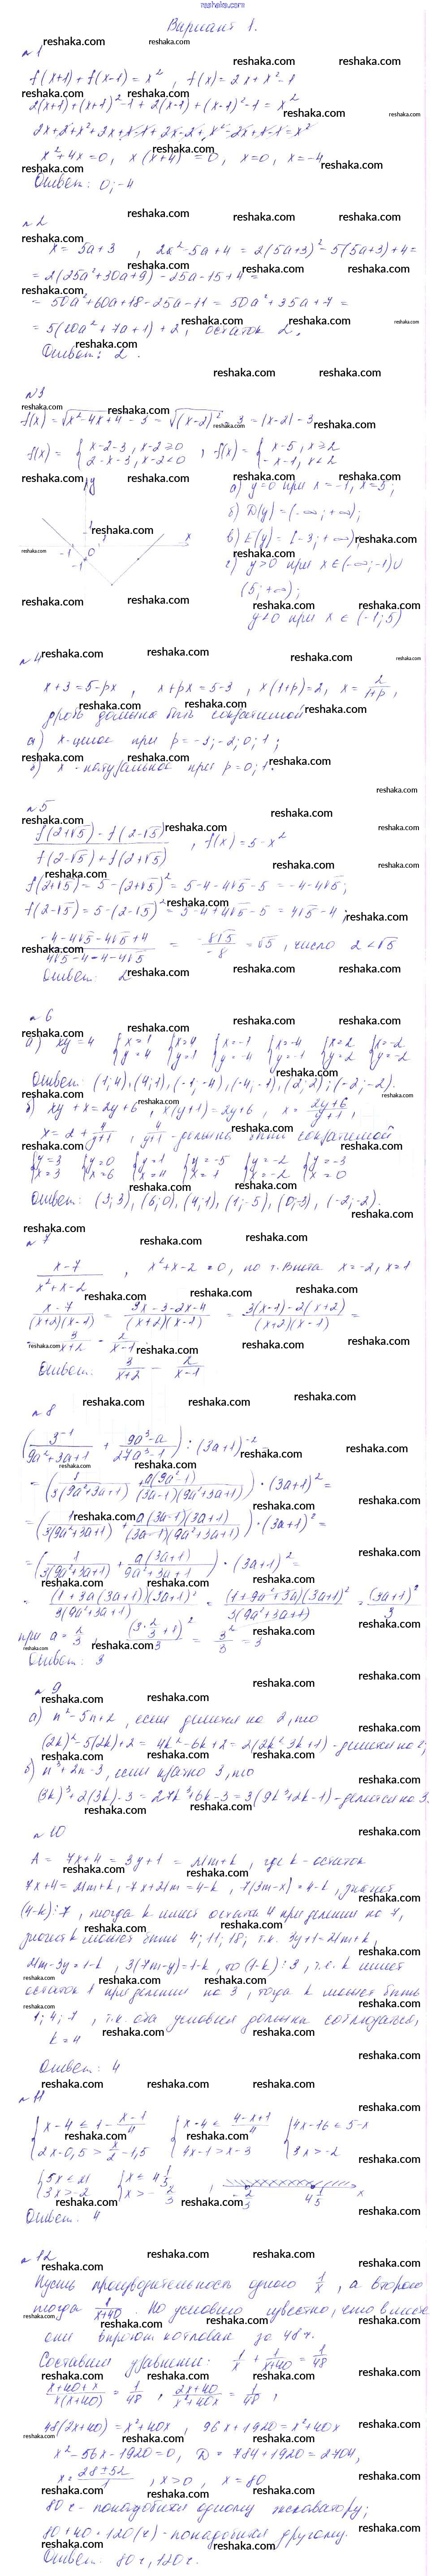 reshaka.com
Вариант 1.
№1
f(x+1) + f(x-1) = x², f(x) = 2x + x² - 1
2(x+1) + (x+1)² - 1 + 2(x-1) + (x-1)² - 1 = x²
2x+2+x²+2x+1-1+2x-2+x²-2x+1-1=x²
x²+4x=0, x(x+4)=0, x=0, x=-4
Ответ: 0; -4
№2
x = 5a+3, 2x²-5a+4 = 2(5a+3)² - 5(5a+3)+4 =
= 2(25a²+30a+9) - 25a-15+4 =
= 50a²+60a+18-25a-11 = 50a²+35a+7 =
= 5(10a²+7a+1)+2, остаток 2.
Ответ: 2.
№3
f(x) = √x²-4x+4 - 3 = √(x-2)² - 3 = |x-2| - 3
f(x) = { x-2-3, x-2≥0 2-x-3, x-2<0 , f(x) = { x-5, x≥2 -x-1, x<2
y
а) y=0 при x=-1, x=5;
б) D(y) = (-∞; +∞);
в) E(y) = [-3; +∞);
г) y>0 при x∈(-∞;-1)∪
(5; +∞);
y<0 при x∈(-1; 5)
-1 0 1 x
-1
№4
x+3 = 5-px, x+px = 5-3, x(1+p)=2, x = 2/1+p,
дробь должна быть сократимой
а) x-целое при p=-3;-2;0;1;
б) x-натуральное при p=0;1.
№5
f(2+√5) - f(2-√5) / f(2-√5) + f(2+√5), f(x) = 5-x²
f(2+√5) = 5-(2+√5)² = 5-4-4√5-5 = -4-4√5;
f(2-√5) = 5-(2-√5)² = 5-4+4√5-5 = 4√5-4;
-4-4√5-4√5+4 / 4√5-4-4-4√5 = -8√5 / -8 = √5, число 2<√5
Ответ: 2
№6
а) xy=4 {x=1 y=4 {x=4 y=1 {x=-1 y=-4 {x=-4 y=-1 {x=2 y=2 {x=-2 y=-2
Ответ: (1;4),(4;1),(-1;-4),(-4;-1),(2;2),(-2;-2).
б) xy+x=2y+6, x(y+1)=2y+6, x = 2y+6/y+1,
x = 2 + 4/y+1, 4/y+1 - должна быть сократимой
{y=3 x=3 {y=0 x=6 {y=1 x=4 {y=-5 x=1 {y=-2 x=-2 {y=-3 x=0
Ответ: (3;3), (6;0), (4;1), (1;-5), (0;-3), (-2;-2).
№7
x-7 / x²+x-2, x²+x-2=0, по т. Виета x=-2, x=1
x-7 / (x+2)(x-1) = 3x-3-2x-4 / (x+2)(x-1) = 3(x-1)-2(x+2) / (x+2)(x-1) =
= 3/x+2 - 2/x-1.
Ответ: 3/x+2 - 2/x-1
№8
(3⁻¹ / 9a²+3a+1 + 9a³-a / 27a³-1) : (3a+1)⁻² =
= (1 / 3(9a²+3a+1) + a(9a²-1) / (3a-1)(9a²+3a+1)) · (3a+1)² =
= (1 / 3(9a²+3a+1) + a(3a-1)(3a+1) / (3a-1)(9a²+3a+1)) · (3a+1)² =
= (1 / 3(9a²+3a+1) + a(3a+1) / 9a²+3a+1) · (3a+1)² =
= (1+3a(3a+1))(3a+1)² / 3(9a²+3a+1) = (1+9a²+3a)(3a+1)² / 3(9a²+3a+1) = (3a+1)² / 3
при a = 2/3, (3·2/3+1)² / 3 = 3²/3 = 3
Ответ: 3
№9
а) n²-5n+2, если делится на 2, то
(2k)²-5(2k)+2 = 4k²-6k+2 = 2(2k²-3k+1) - делится на 2;
б) n³+2n-3, если кратно 3, то
(3k)³+2(3k)-3 = 27k³+6k-3 = 3(9k³+2k-1) - делится на 3.
№10
A = 7x+4 = 3y+1 = 21m+k, где k-остаток
7x+4=21m+k, -7x+21m=4-k, 7(3m-x)=4-k, значит
(4-k)⋮7, тогда k имеет остаток 4 при делении на 7,
значит k может быть 4; 11; 18; т.к. 3y+1=21m+k,
21m-3y=1-k, 3(7m-y)=1-k, то (1-k)⋮3, т.е. k имеет
остаток 1 при делении на 3, тогда k может быть
1; 4; 7, т.к. оба условия должны соблюдаться,
k=4
Ответ: 4
№11
{x-4 ≤ 1 - x-1/4 2x-0,5 > x/2 - 1,5 {x-4 ≤ 4-x+1/4 4x-1 > x-3 {4x-16 ≤ 5-x 3x > -2
{5x ≤ 21 3x > -2 {x ≤ 4 1/5 x > -2/3, -2/3 4 1/5 x
Ответ: 4
№12
Пусть производительность одного 1/x, а второго
тогда 1/x+40. По условию известно, что вместе
они вырою́т котлован за 48 ч.
Составим уравнение: 1/x + 1/x+40 = 1/48
x+40+x / x(x+40) = 1/48, 2x+40 / x²+40x = 1/48,
48(2x+40) = x²+40x, 96x+1920 = x²+40x
x²-56x-1920=0, D = 784+1920 = 2704,
x = 28±52 / 1, x>0, x=80
80 ч - понадобится одному экскаватору;
80+40=120(ч) - понадобится другому.
Ответ: 80 ч, 120 ч.